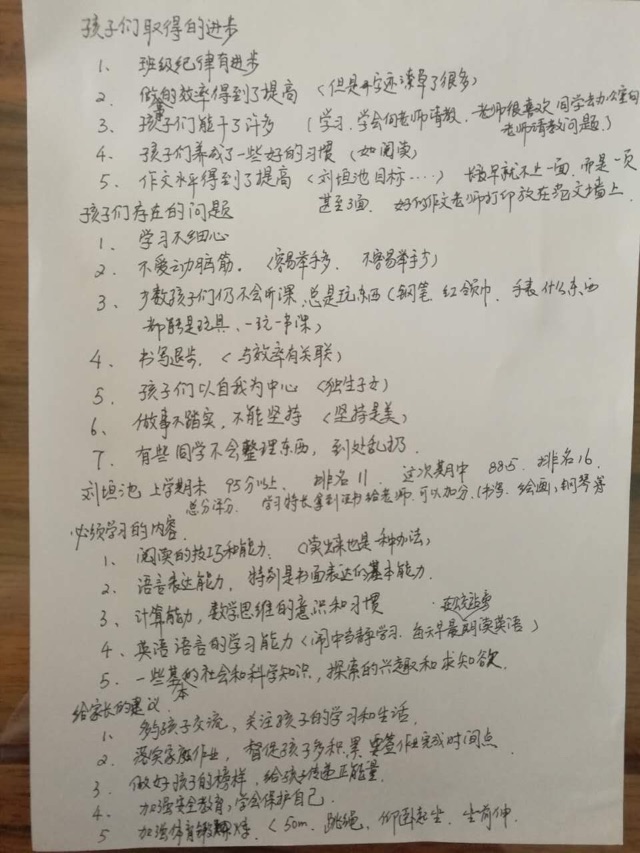 孩子们取得的进步
1、班级纪律有进步
2、做事的效率得到了提高（但是书写还潦草了很多）
3、孩子们能干了许多（学习、学会向老师请教、老师很喜欢同学去办公室向
老师请教问题）
4、孩子们养成了一些好的习惯（如阅读）
5、作文水平得到了提高（刘垣池目标....）早就不止一面，而是一页
甚至3面、好的作文老师打印放在范文墙上、
孩子们存在的问题
1、学习不细心
2、不爱动脑筋。（容易举手多、不容易举手少）
3、少数孩子们仍不会听课、总是玩东西（钢笔、红领巾、手表什么东西
都能是玩具、一玩一节课）
4、书写退步、（与效率有关联）
5、孩子们以自我为中心（独生子女）
6、做事不踏实，不能坚持（坚持是美）
7、有些同学不会整理东西，到处乱扔、
刘垣池 上学期末 95分以上、排名11 这次期中 88.5、排名16
总分评分、学习特长拿到证书给老师、可以加分、（书写、绘画、钢琴等
必须学习的内容
1、阅读的技巧和能力、（读出来也是一种办法）
2、语言表达能力、特别是书面表达的基本能力、
3、计算能力，数学思维的意识和习惯
4、英语语言的学习能力（闹中当静学习、每天早晨朗读英语）
5、一些基本的社会和科学知识，探索的兴趣和求知欲、
给家长的建议
1、多与孩子交流，关注孩子的学习和生活、
2、落实家庭作业，督促孩子多积累 要签作业完成时间点
3、做好孩子的榜样、给孩子传递正能量、
4、加强安全教育，学会保护自己、
5 加强体育锻炼（50m、跳绳、仰卧起坐、坐前伸、